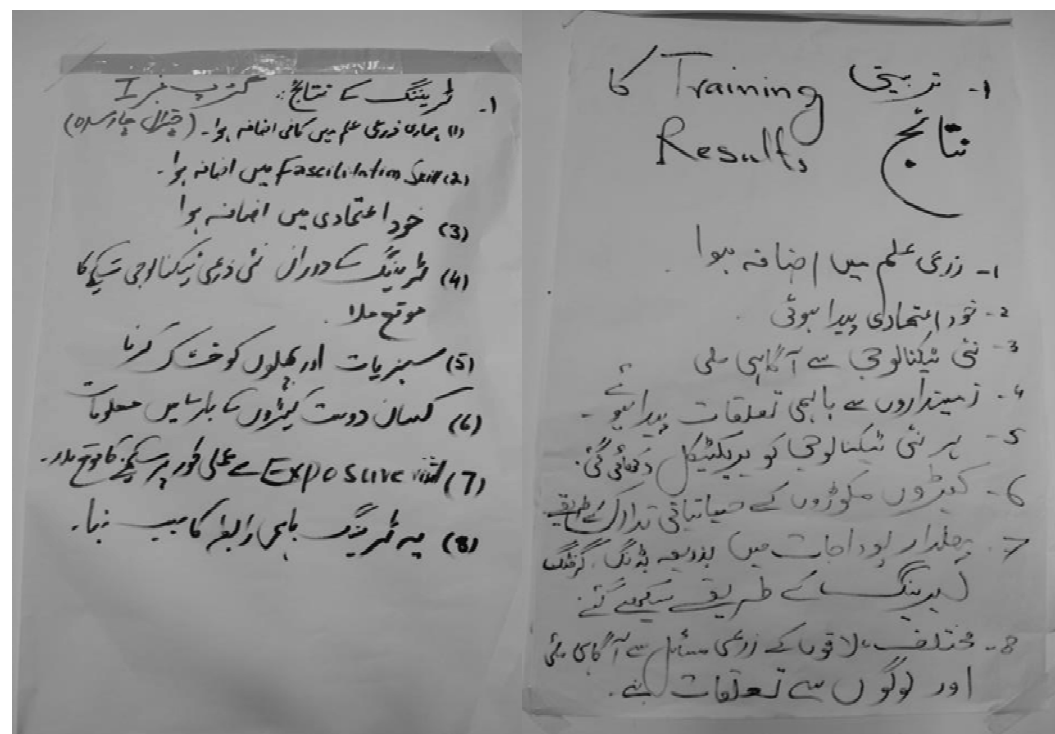 1- ٹریننگ کے نتائج :: گروپ نمبر I
(1) ہماری زرعی علم میں کافی اضافہ ہوا۔ (چترال چارسدہ)
(2) Fascilitatim Skill میں اضافہ ہوا۔
(3) خود اعتمادی میں اضافہ ہوا
(4) ٹریننگ کے دوران نئی زرعی ٹیکنالوجی سیکھنے کا
موقع ملا۔
(5) سبزیات اور پھلوں کو خشک کرنا
(6) کسان دوست کیڑوں کے بارے میں معلومات
(7) Exposure visit سے عملی طور پر سیکھنے کا موقع ملا۔
(8) یہ ٹریننگ باہمی رابطہ کا سبب بنا۔
1- تربیتی Training کا
نتائج Results
1- زرعی علم میں اضافہ ہوا۔
2- خود اعتمادی پیدا ہوئی۔
3- نئی ٹیکنالوجی سے آگاہی ملی
4- زمینداروں سے باہمی تعلقات پیدا ہوئے۔
5- ہر نئی ٹیکنالوجی کو پریکٹیکل دکھائی گئی۔
6- کیڑوں مکوڑوں کے حیاتیاتی تدارک کے طریقے
7- پھلدار پوداجات میں بذریعہ بڈنگ، گرفٹنگ
لیرینگ کے طریقے سیکھے گئے۔
8- مختلف علاقوں کے زرعی مسائل سے آگاہی ملی
اور لوگوں سے تعلقات بنے۔